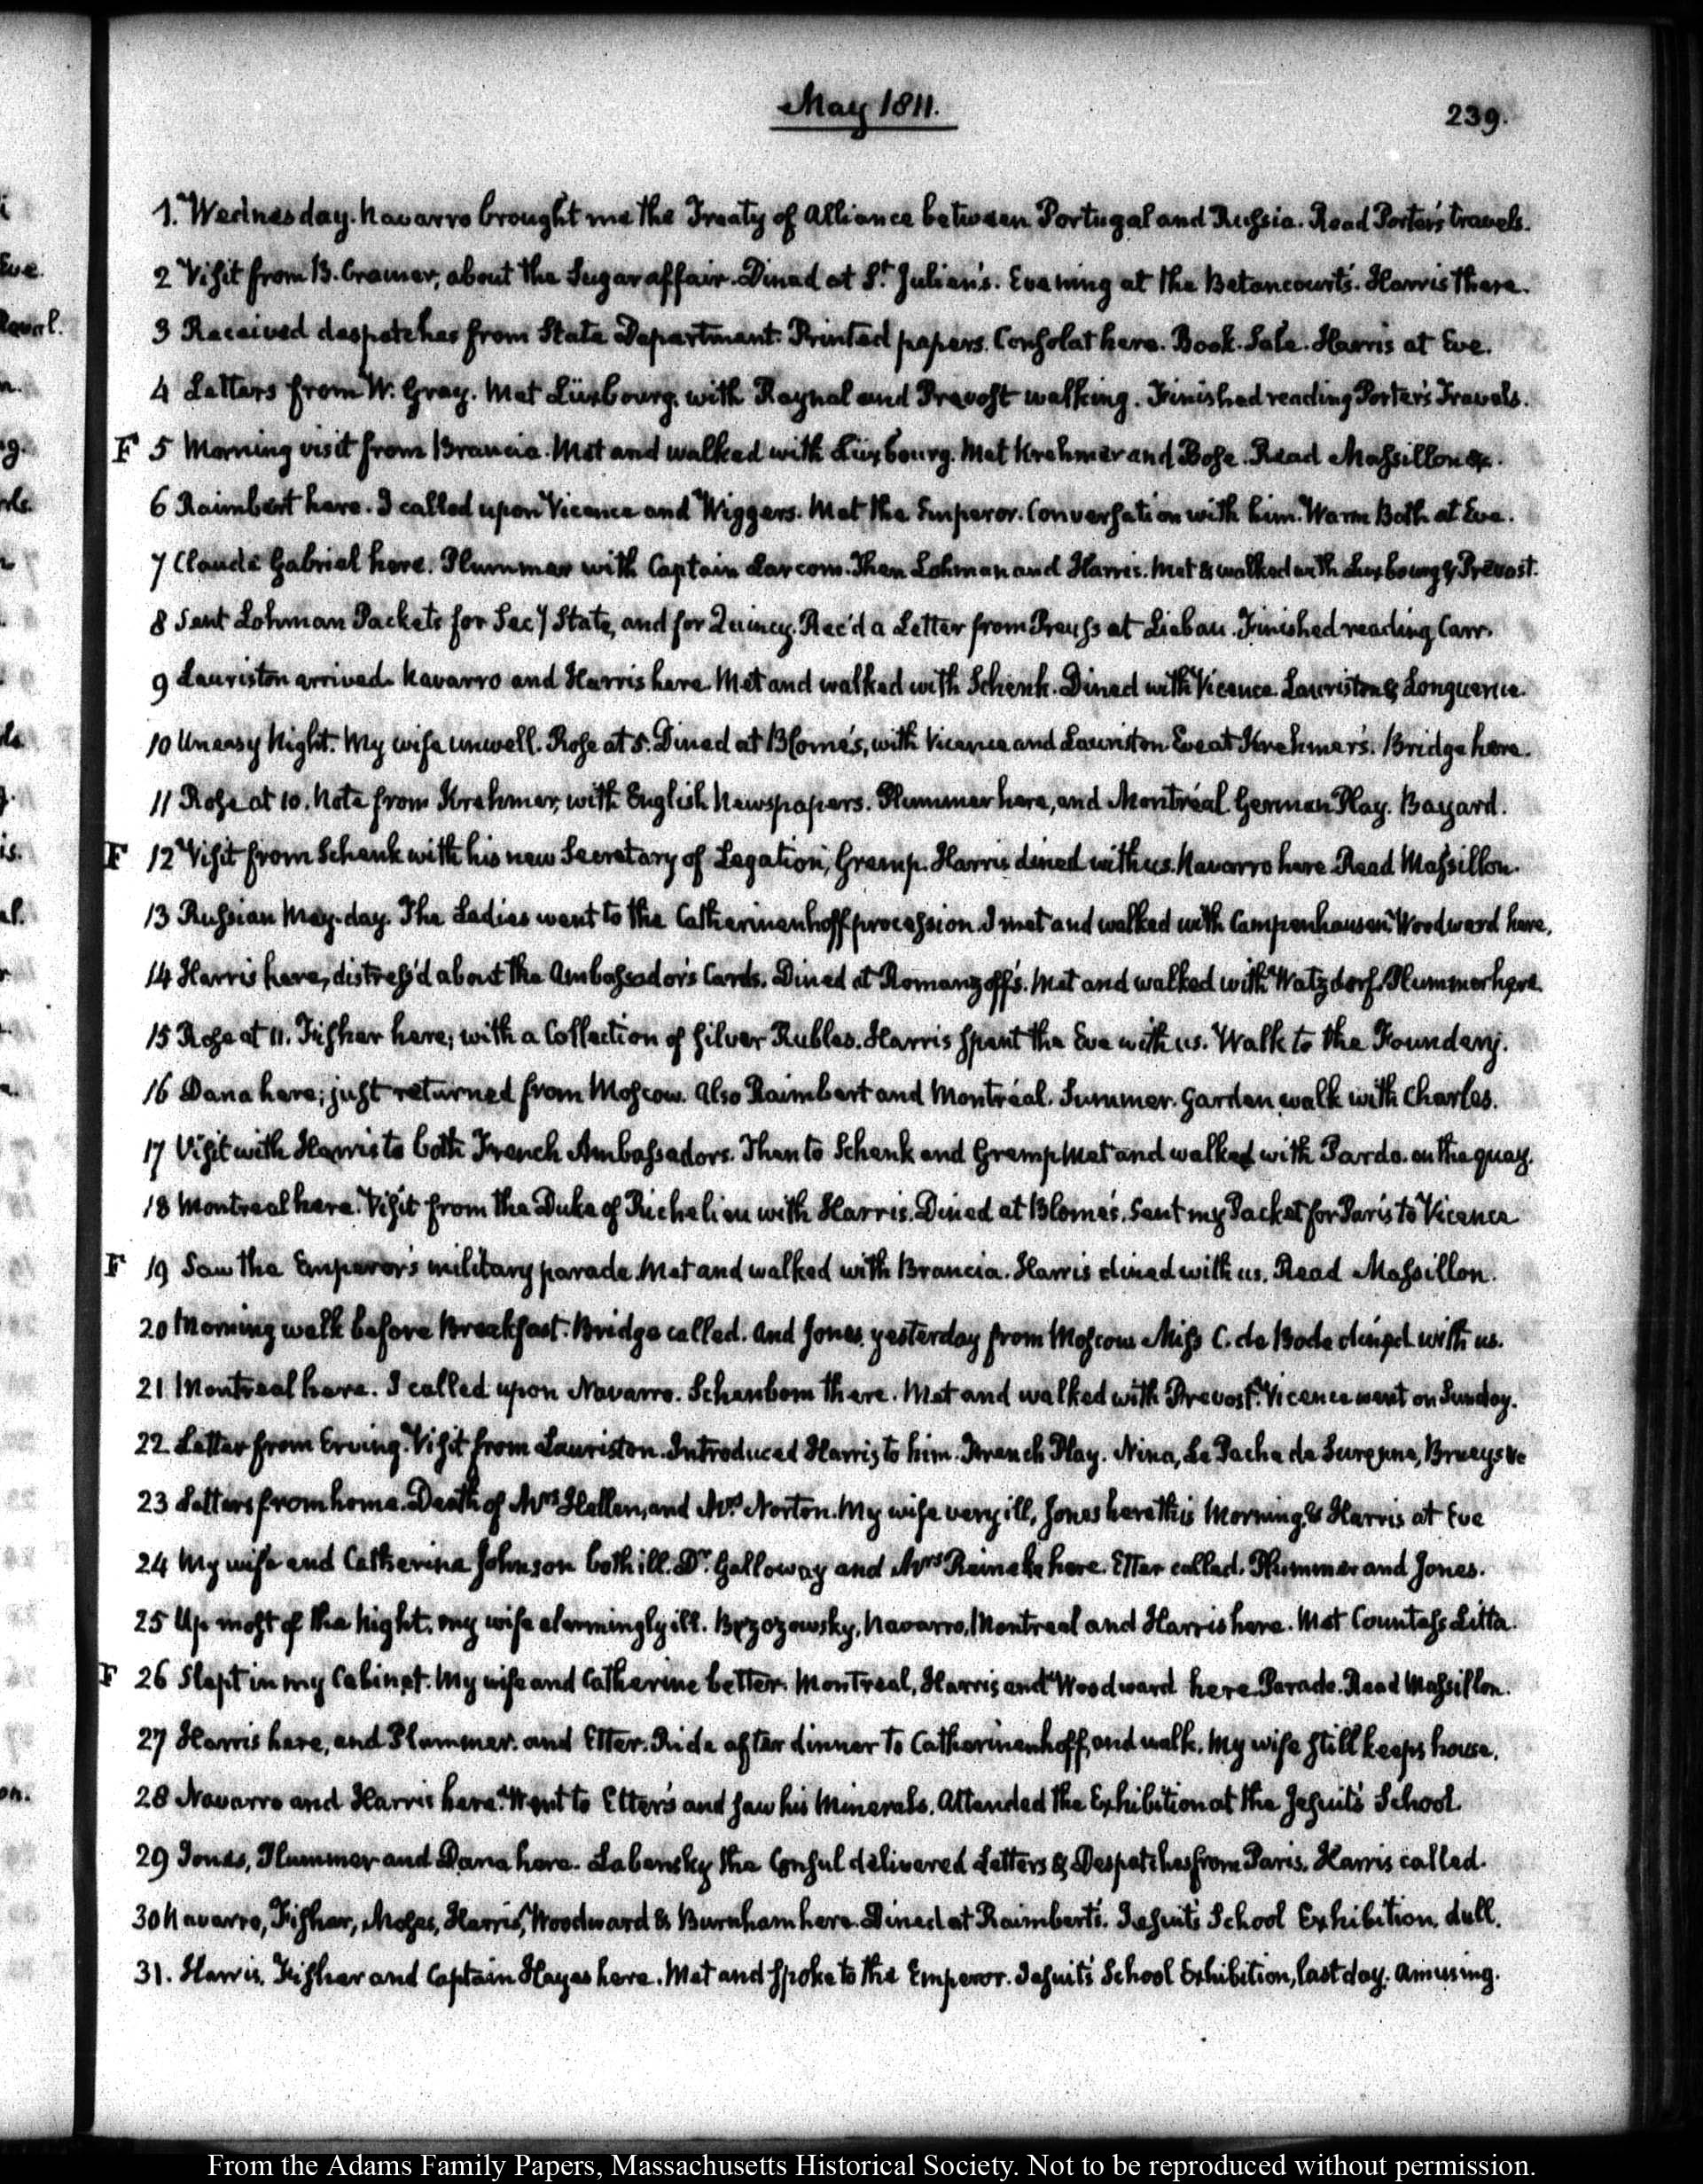 May 1811.
239.
1. Wednesday. Navarro brought me the Treaty of Alliance between Portugal and Russia. Read Porter's travels.
2 Visit from B. Cramer, about the Sugar affair. Dined at St. Julien's. Evening at the Betancourts'. Harris there.
3 Received despatches from State Department. Printed papers. Consolat here. Book-Sale. Harris at Eve.
4 Letters from W. Gray. Met Lüxbourg, with Raynal and Prevost walking. Finished reading Porter's Travels.
F 5 Morning visit from Brancia. Met and walked with Lüxbourg. Met Krehmer and Bose. Read Massillon &c.
6 Raimbert here. I called upon Vicence and Wiggers. Met the Emperor. Conversation with him. Warm Bath at Eve.
7 Claude Gabriel here. Plummer with Captain Larcom. Then Lohman and Harris. Met & walked with Luxbourg & Prevost.
8 Sent Lohman Packets for Secy State, and for Quincy. Rec'd a Letter from Preuss at Liebau. Finished reading Carr.
9 Lauriston arrived. Navarro and Harris here. Met and walked with Schenk. Dined with Vicence. Lauriston & Longuerue.
10 Uneasy Night. My wife unwell. Rose at 5. Dined at Blome's, with Vicence and Lauriston Eve at Krehmer's. Bridge here.
11 Rose at 10. Note from Krehmer, with English Newspapers. Plummer here, and Montréal. German Play. Bayard.
F 12 Visit from Schenk with his new Secretary of Legation, Gremp. Harris dined with us. Navarro here. Read Massillon.
13 Russian May-day. The Ladies went to the Catherinenhoff procession. I met and walked with Campenhausen. Woodward here.
14 Harris here, distress'd about the Ambassador's Cards. Dined at Romanzoff's. Met and walked with Watzdorf. Plummer here.
15 Rose at 11. Fisher here; with a Collection of silver Rubles. Harris spent the Eve with us. Walk to the Foundery.
16 Dana here; just returned from Moscow. Also Raimbert and Montréal. Summer-Garden walk with Charles.
17 Visit with Harris to both French Ambassadors. Then to Schenk and Gremp Met and walked with Pardo. on the quay.
18 Montreal here. Visit from the Duke of Richelieu with Harris. Dined at Blome's. Sent my Packet for Paris to Vicence
F 19 Saw the Emperor's military parade. Met and walked with Brancia. Harris dined with us. Read Massillon.
20 Morning walk before Breakfast. Bridge called. And Jones, yesterday from Moscow. Miss C. de Bode dined with us.
21 Montreal here. I called upon Navarro. Schenbom there. Met and walked with Prevost. Vicence went on Sunday.
22 Letter from Erving. Visit from Lauriston. Introduced Harris to him. French Play. Nina, Le Pacha de Suresne, Brueys &c
23 Letters from home. Death of Mrs Hellen, and Mrs. Norton. My wife very ill, Jones here this Morning, & Harris at Eve
24 My wife and Catherine Johnson both ill. Dr. Galloway and Mrs Reineke here. Etter called. Plummer and Jones.
25 Up most of the Night. my wife alarmingly ill. Brzozowsky, Navarro, Montreal and Harris here. Met Countess Litta.
F 26 Slept in my Cabinet. My wife and Catherine better. Montreal, Harris and Woodward here. Parade. Read Massillon.
27 Harris here, and Plummer. and Etter. Ride after dinner to Catherinenhoff, and walk. My wife still keeps house.
28 Navarro and Harris here. Went to Etter's and saw his Minerals. Attended the Exhibition at the Jesuits' School.
29 Jones, Plummer and Dana here. Labensky the Consul delivered Letters & Despatches from Paris. Harris called.
30 Navarro, Fisher, Moses, Harris, Woodward & Burnham here. Dined at Raimbert's. Jesuits School Exhibition, dull.
31. Harris, Fisher and Captain Hayes here. Met and spoke to the Emperor. Jesuits' School Exhibition, last day. amusing.
From the Adams Family Papers, Massachusetts Historical Society. Not to be reproduced without permission.